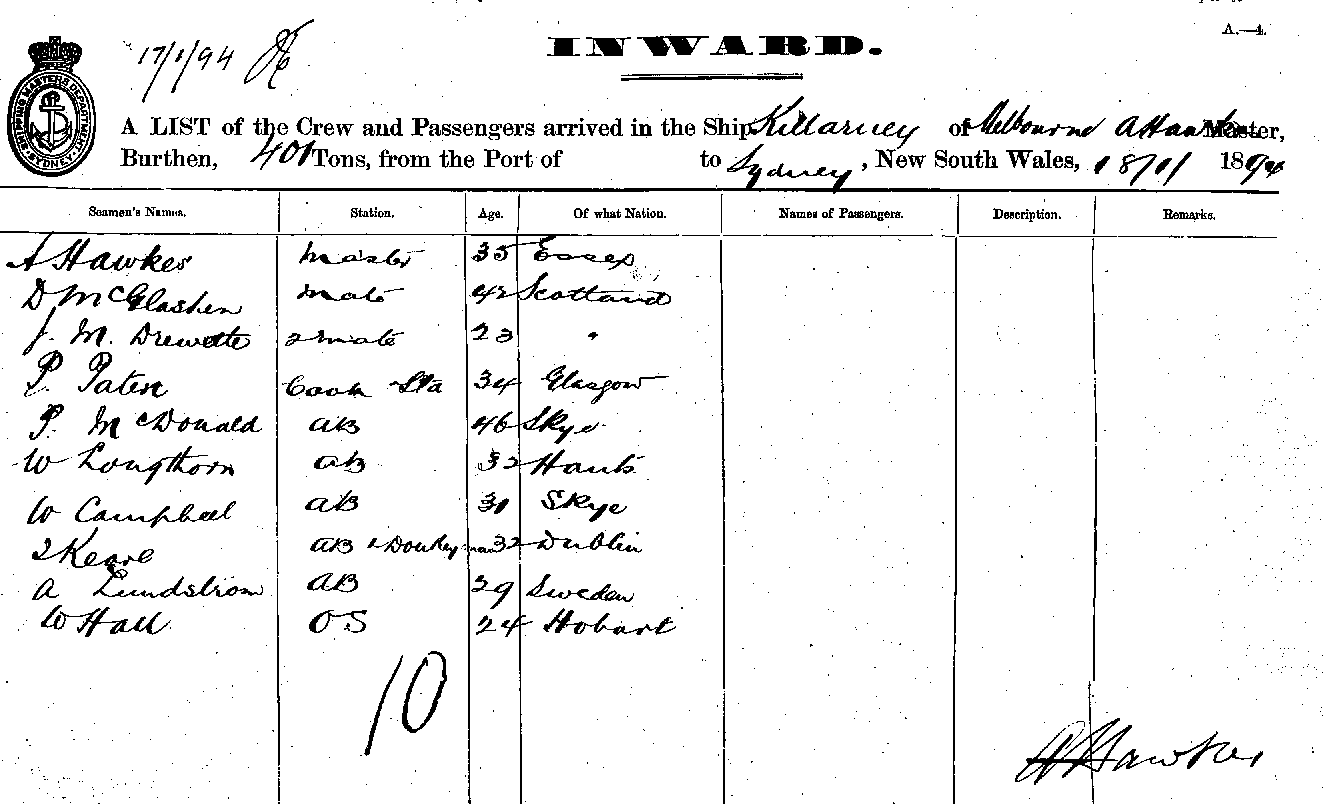 A.—4.
17/1/94
INWARD.
SHIPPING MASTERS DEPARTMENT SYDNEY
A LIST of the Crew and Passengers arrived in the Ship Killarney of Melbourne A Hawkes Master,
Burthen, 401 Tons, from the Port of to Sydney, New South Wales, 18/1/ 1894
Seamen's Names. Station. Age. Of what Nation. Names of Passengers. Description. Remarks.
A Hawkes Master 35 Essex
D McGlashen Mate 42 Scotland
J. M. Drewette 2 Mate 23 "
P. Paten Cook Std 34 Glasgow
P. McDonald AB 46 Skye
W Longthorn AB 32 Hants
W Campbell AB 31 Skye
AB & Donkeyman 32 Dublin
A Lundstrom AB 29 Sweden
W Hall OS 24 Hobart
10
A Hawkes